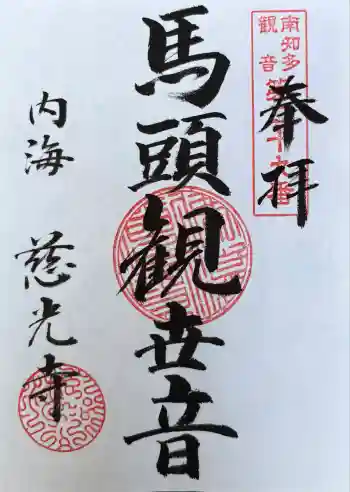 南知多
観音
奉拝
馬頭観世音
内海
慈光寺